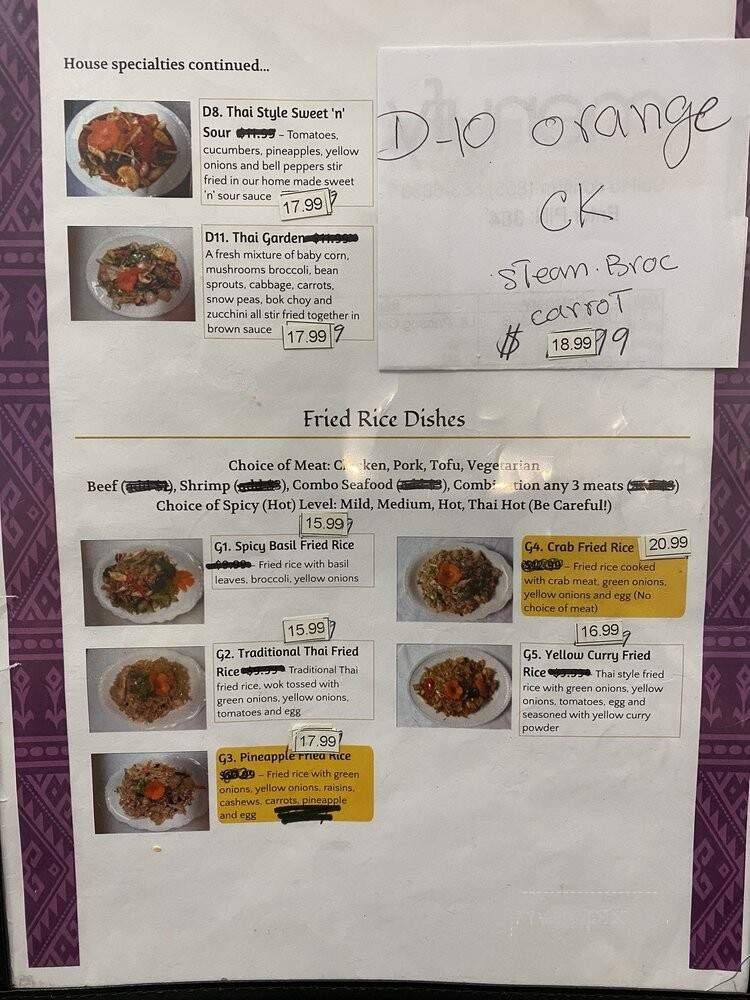 House specialties continued...
D8. Thai Style Sweet 'n'
Sour $11.99 – Tomatoes,
cucumbers, pineapples, yellow
onions and bell peppers stir
fried in our home made sweet
'n' sour sauce 17.99
D11. Thai Garden
A fresh mixture of baby corn,
mushrooms broccoli, bean
sprouts, cabbage, carrots,
snow peas, bok choy and
zucchini all stir fried together in
brown sauce 17.99
D-10 orange
CK
steam. Broc
carrot
$ 18.99
Fried Rice Dishes
Choice of Meat: Chicken, Pork, Tofu, Vegetarian
Beef (add $2), Shrimp (add $3), Combo Seafood, Combination any 3 meats
Choice of Spicy (Hot) Level: Mild, Medium, Hot, Thai Hot (Be Careful!)
15.99
G1. Spicy Basil Fried Rice
– Fried rice with basil
leaves, broccoli, yellow onions
15.99
G2. Traditional Thai Fried
Rice Traditional Thai
fried rice, wok tossed with
green onions, yellow onions,
tomatoes and egg
17.99
G3. Pineapple Fried Rice
– Fried rice with green
onions, yellow onions, raisins,
cashews, carrots, pineapple
and egg
G4. Crab Fried Rice 20.99
– Fried rice cooked
with crab meat, green onions,
yellow onions and egg (No
choice of meat)
16.99
G5. Yellow Curry Fried
Rice Thai style fried
rice with green onions, yellow
onions, tomatoes, egg and
seasoned with yellow curry
powder